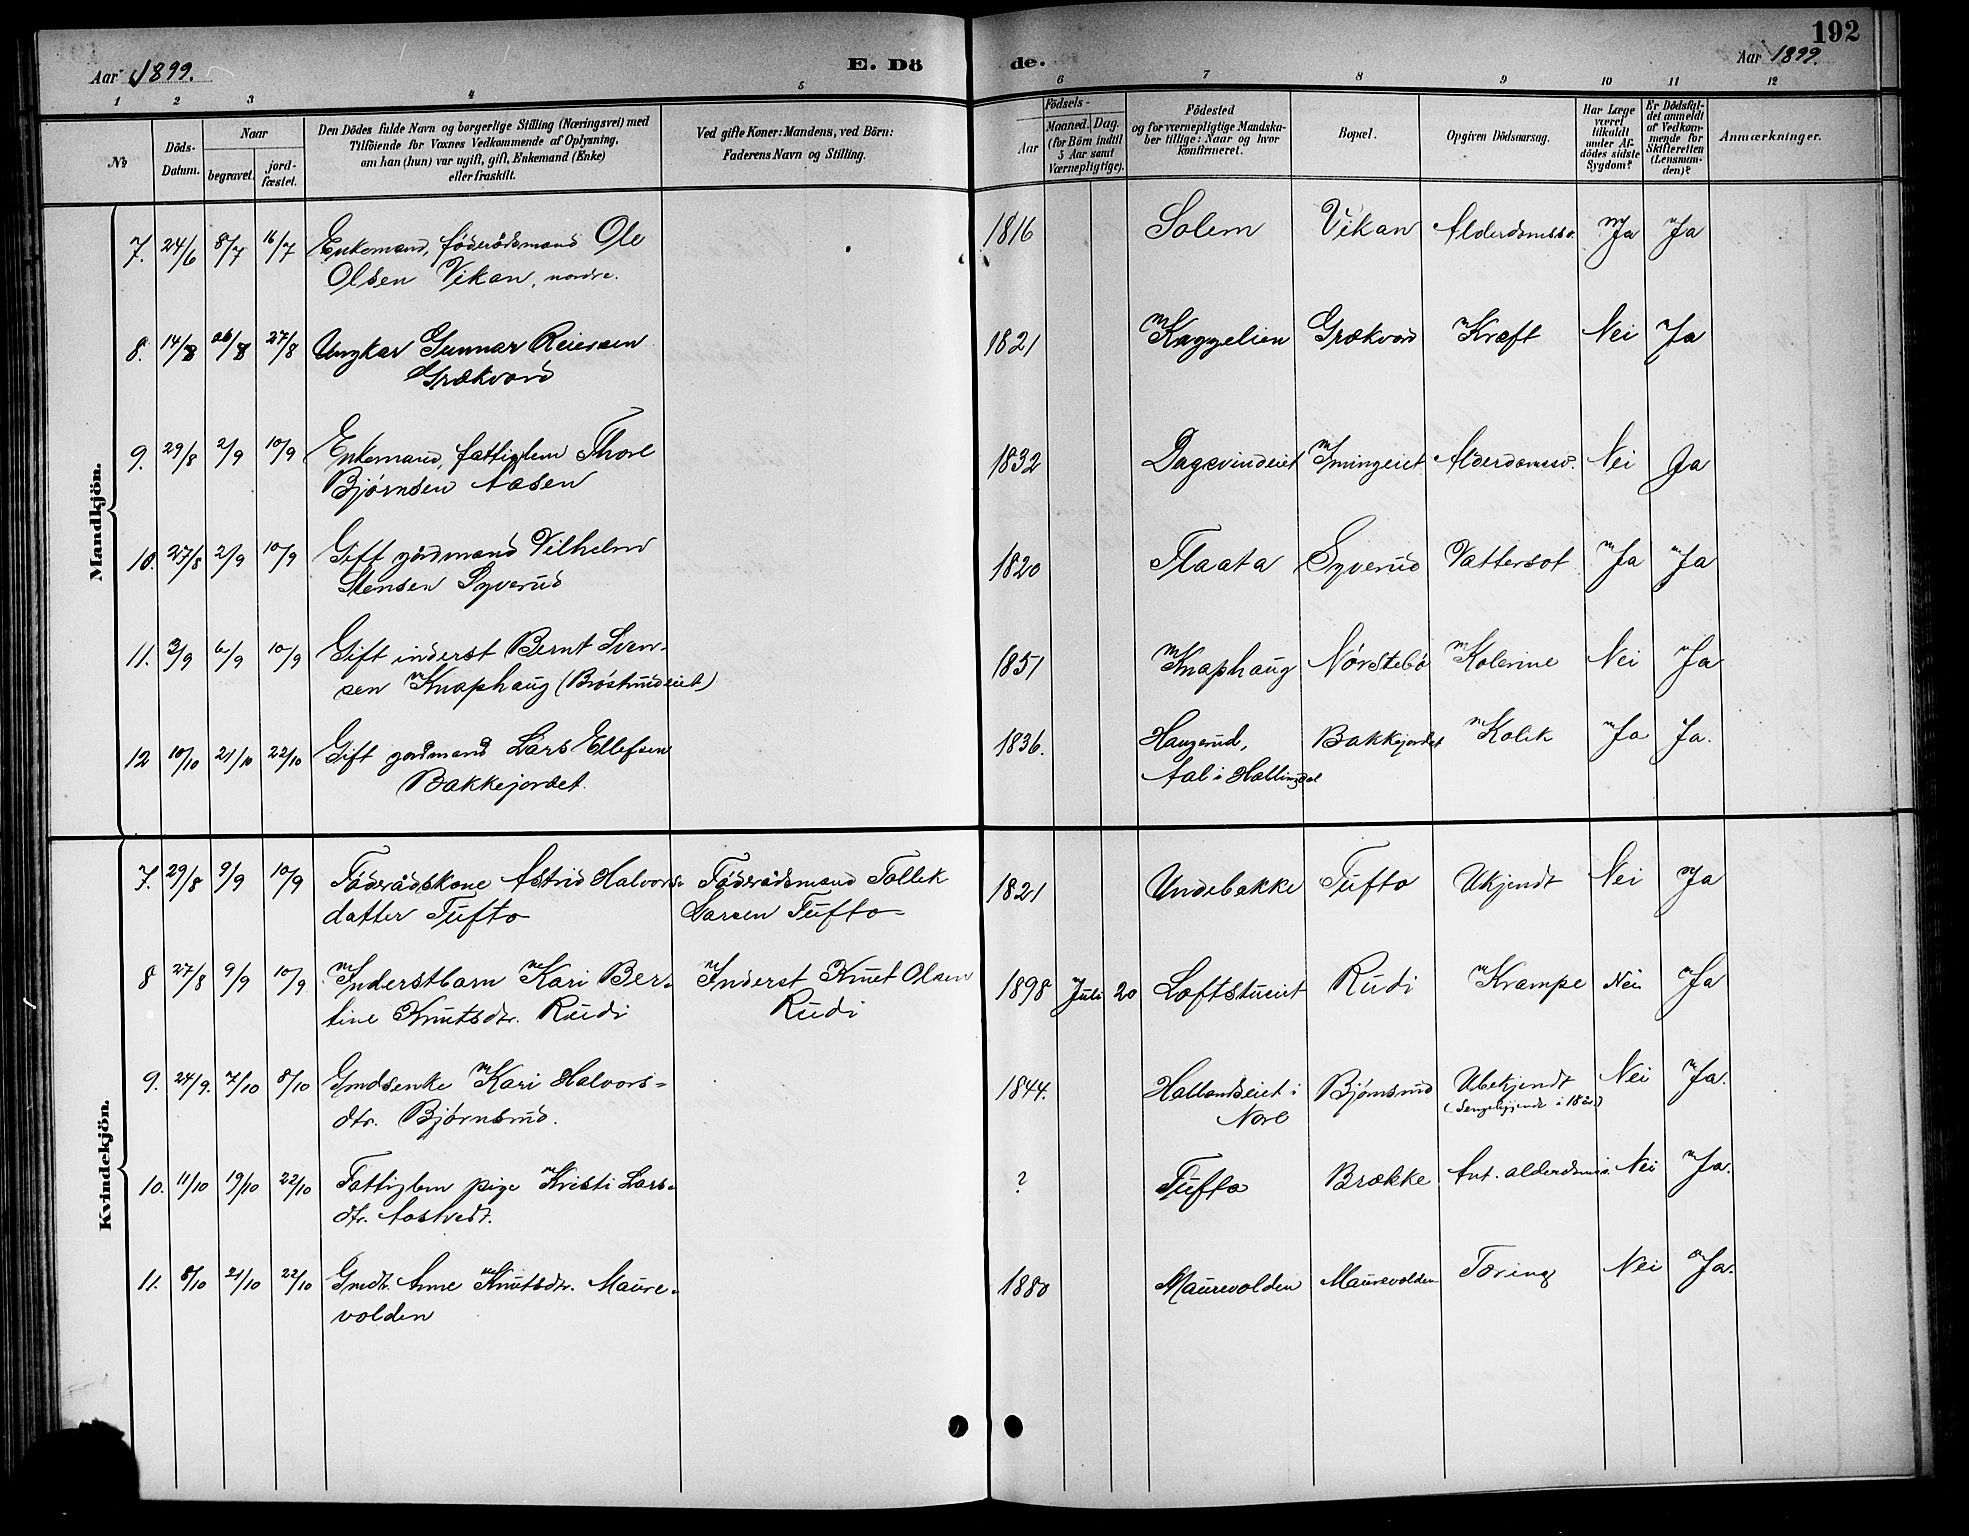 192
Aar 1899.
E. Dö
de.
Aar 1899.
1 2 3 4 5 6 7 8 9 10 11 12
No
Döds-
Datum.
Naar
begravet.
jord-
fæstet.
Den Dödes fulde Navn og borgerlige Stilling (Næringsvei) med
Tilföiende for Voxnes Vedkommende af Oplysning,
om han (hun) var ugift, gift, Enkemand (Enke)
eller fraskilt.
Ved gifte Koner: Mandens, ved Börn:
Faderens Navn og Stilling.
Födsels-
Aar
Maaned. Dag.
(for Börn indtil
5 Aar samt
Værnepligtige).
Födested
og for værnepligtige Mandska-
ber tillige: Naar og hvor
konfirmeret.
Bopæl.
Opgiven Dödsaarsag.
Har Læge
været
tilkaldt
under Af-
dödes sidste
Sygdom?
Er Dödsfal-
det anmeldt
af Vedkom-
mende for
Skifteretten
(Lensman-
den)?
Anmærkninger.
Mandkjön.
7. 24/6 8/7 16/7 Enkemand, föderådsmand Ole 1816 Solem Vikan Alderdomssv. Ja Ja
Olsen Vikan, nordre.
8. 14/8 26/8 27/8 Ungkar Gunnar Reiersen 1821 Kaggelien Grækvord Kræft Nei Ja
Grækvord
9. 29/8 2/9 10/9 Enkemand, fattiglem Thore 1832 Dagsvindeiet Imingeiet Alderdomssv. Nei Ja
Bjørnsen Aasen
10. 27/8 2/9 10/9 Gift gårdmand Vilhelm 1820 Flaata Syverud Vattersot Ja Ja
Stensen Syverud
11. 3/9 6/9 10/9 Gift inderst Bernt Sven- 1851 Knaphaug Nørstebø Kolerine Nei Ja
sen Knaphaug (Bröstrudeiet)
12 10/10 21/10 22/10 Gift gårdmand Lars Ellefsen 1836. Haugerud, Bakkejordet Kolik Ja Ja.
Bakkejordet. Aal i Hallingdal
Kvindekjön.
7. 29/8 9/9 10/9 Föderådskone Astrid Halvors- Föderådsmand Tollek 1821 Undebakke Tufto Ukjendt Nei Ja
datter Tufto Larsen Tufto
8 27/8 9/9 10/9 Inderstbarn Kari Ber- Inderst Knut Olsen 1898 Juli 20 Loftstueiet Rudi Krampe Nei Ja
tine Knutsdtr. Rudi Rudi
9. 24/9. 7/10 8/10 Gmdsenke Kari Halvors- 1844. Hallandseiet i Bjørnsrud Ubekjendt Nei Ja.
dtr. Bjørnsrud. Nore (Sengeliggende i 18 år)
10. 11/10 19/10 22/10 Fattiglem pige Kristi Lars- ? Tufto Brække Ant. alderdoms. Nei Ja.
dtr. Aasvedt.
11. 8/10 21/10 22/10 Gmdt. Anne Knutsdtr. Maure- 1880 Maurevolden Maurevolden Tæring Nei Ja.
volden